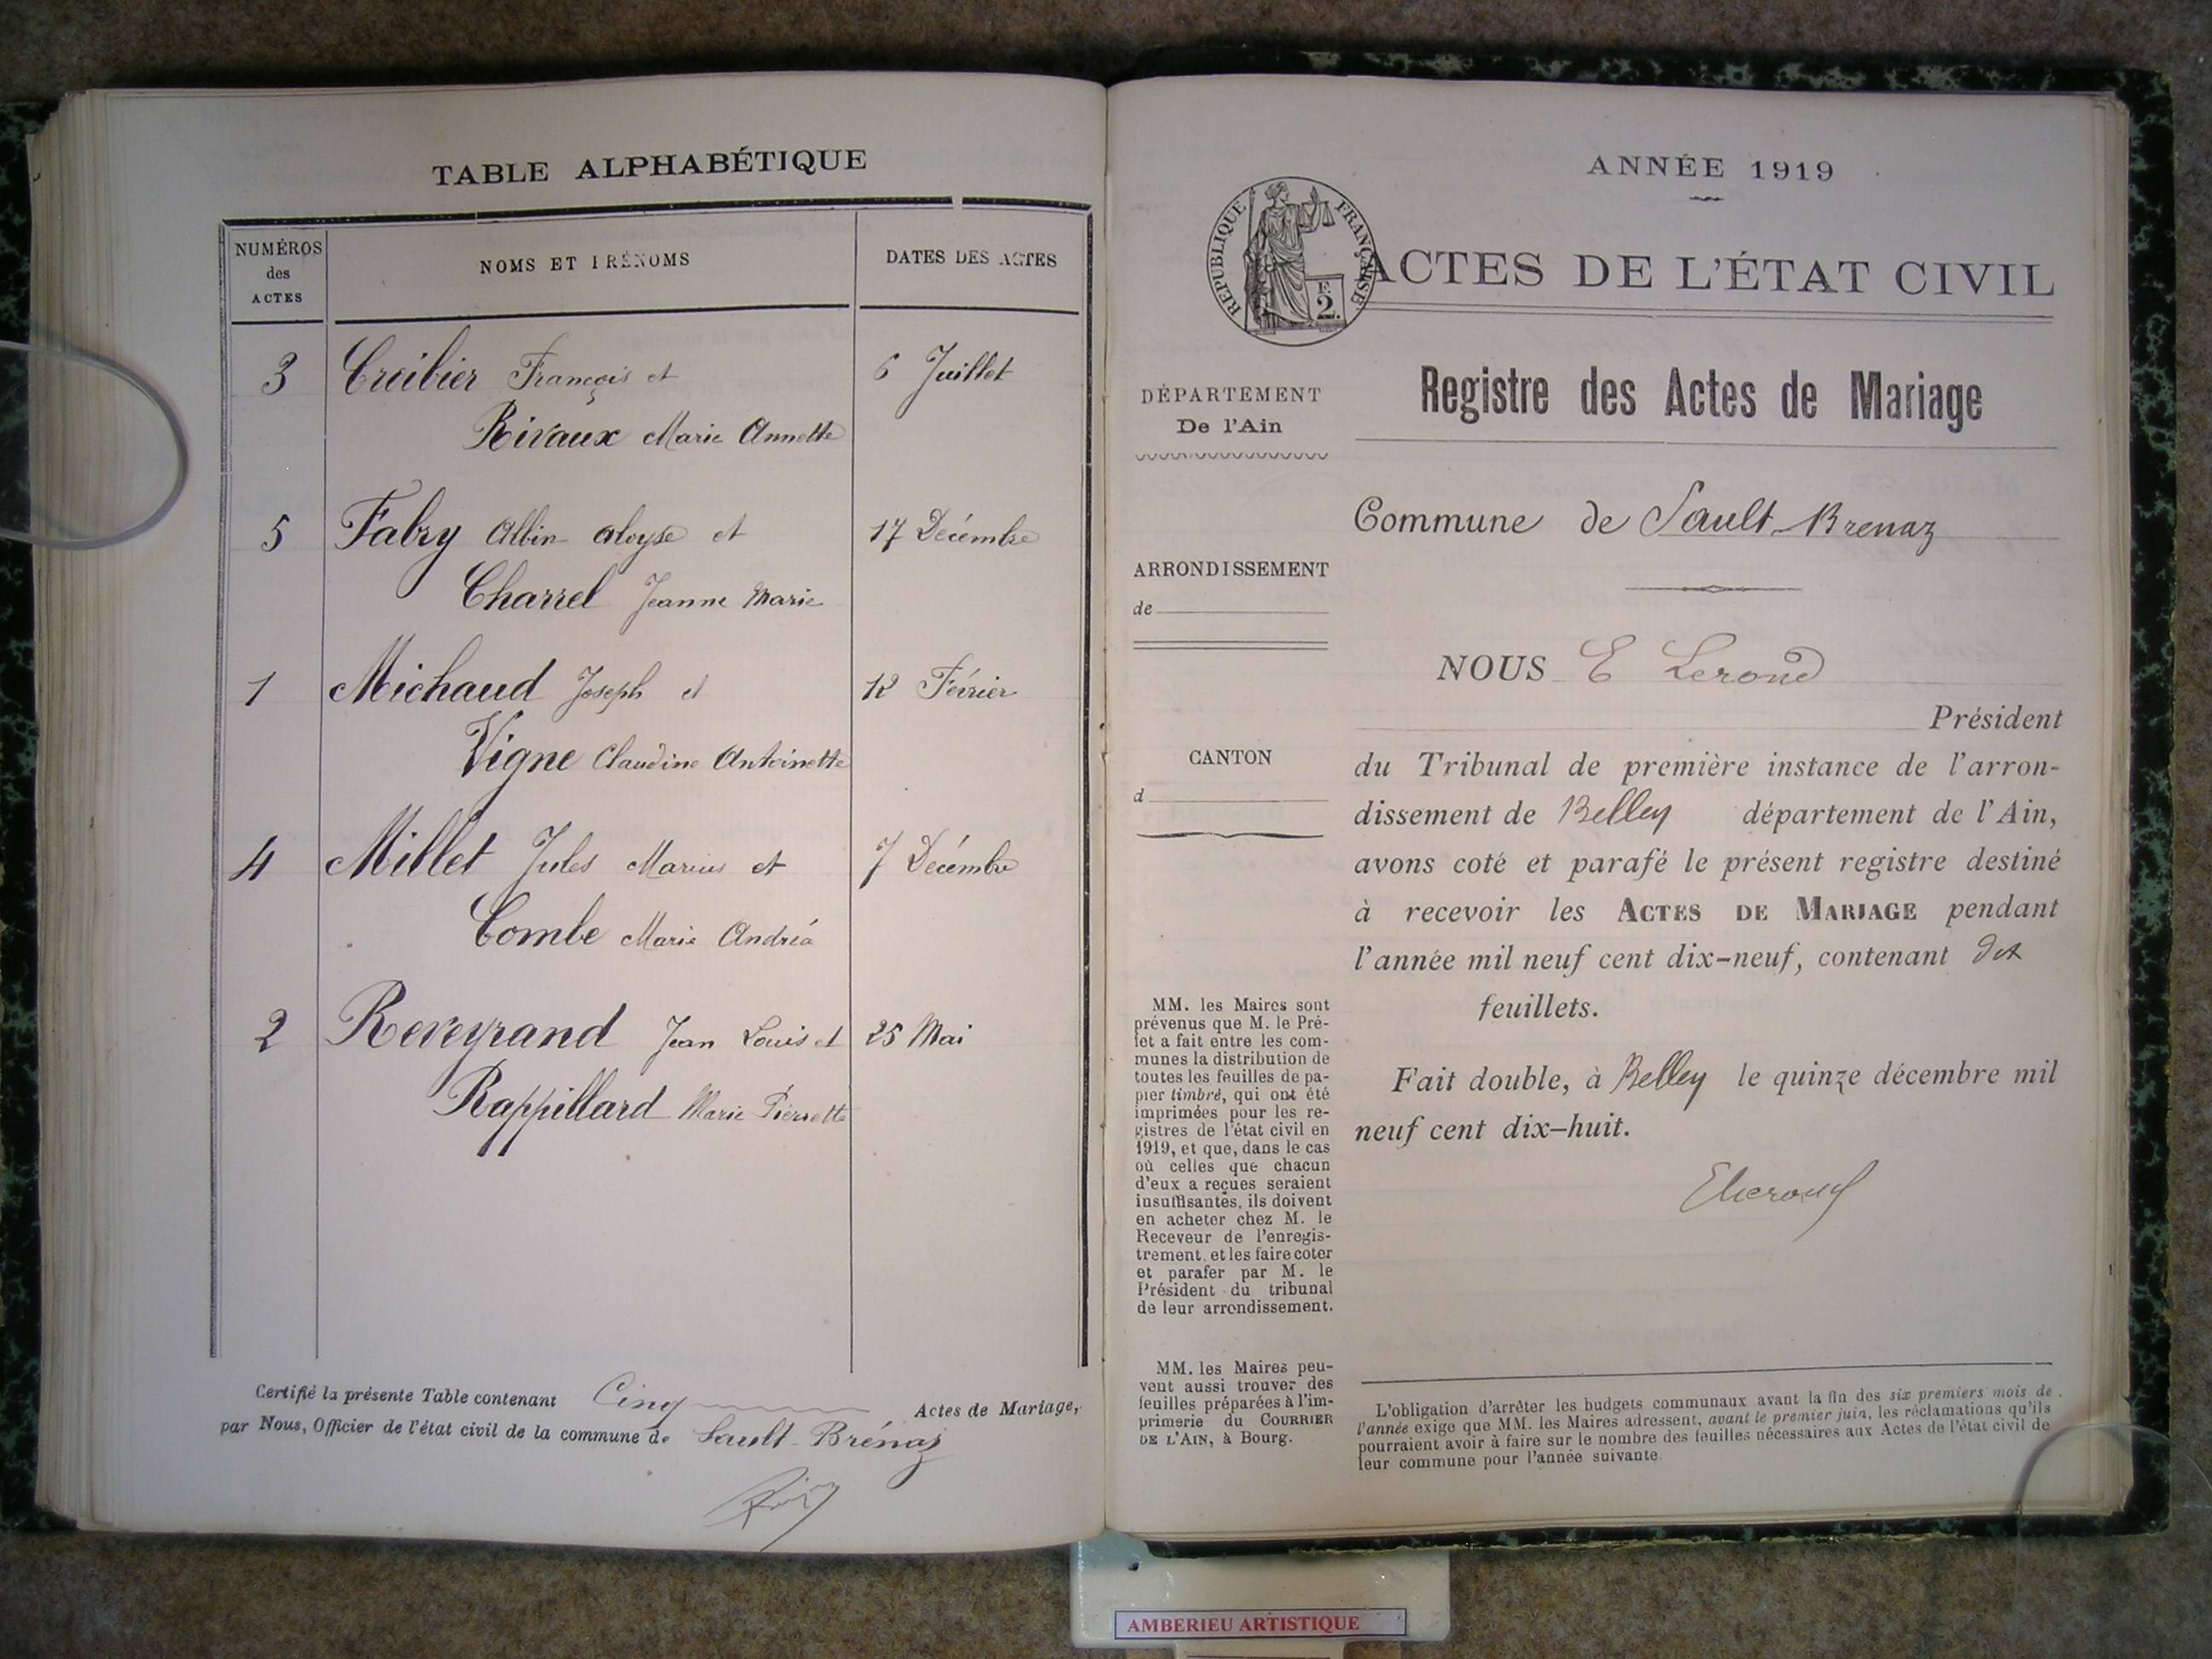 TABLE ALPHABÉTIQUE
NUMÉROS des ACTES
NOMS ET PRÉNOMS
DATES DES ACTES
3 Creibier François et 6 Juillet
Rivaux Marie Annette
5 Fabry Albin aloyse et 17 Décembre
Charrel Jeanne Marie
1 Michaud Joseph et 12 Février
Vigne Claudine Antoinette
4 Millet Jules Marius et 7 Décembre
Combe Marie Andréa
2 Reveyrand Jean Louis et 25 Mai
Rappillard Marie Pierrette
Certifié la présente Table contenant Cinq Actes de Mariage,
par Nous, Officier de l'état civil de la commune de Sault-Brénaz
ANNÉE 1919
RÉPUBLIQUE FRANÇAISE
F.
2.
ACTES DE L'ÉTAT CIVIL
Registre des Actes de Mariage
DÉPARTEMENT
De l'Ain
ARRONDISSEMENT
de
CANTON
d
MM. les Maires sont
prévenus que M. le Pré-
fet a fait entre les com-
munes la distribution de
toutes les feuilles de pa-
pier timbré, qui ont été
imprimées pour les re-
gistres de l'état civil en
1919, et que, dans le cas
où celles que chacun
d'eux a reçues seraient
insuffisantes, ils doivent
en acheter chez M. le
Receveur de l'enregis-
trement, et les faire coter
et parafer par M. le
Président du tribunal
de leur arrondissement.
MM. les Maires peu-
vent aussi trouver des
feuilles préparées à l'im-
primerie du COURRIER
DE L'AIN, à Bourg.
Commune de Sault-Brenaz
NOUS E Lerond
Président
du Tribunal de première instance de l'arron-
dissement de Belley département de l'Ain,
avons coté et parafé le présent registre destiné
à recevoir les ACTES DE MARIAGE pendant
l'année mil neuf cent dix-neuf, contenant dix
feuillets.
Fait double, à Belley le quinze décembre mil
neuf cent dix-huit.
ELerond
L'obligation d'arrêter les budgets communaux avant la fin des six premiers mois de
l'année exige que MM. les Maires adressent, avant le premier juin, les réclamations qu'ils
pourraient avoir à faire sur le nombre des feuilles nécessaires aux Actes de l'état civil de
leur commune pour l'année suivante.
AMBERIEU ARTISTIQUE